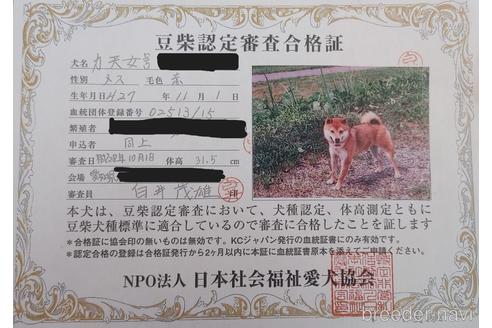 豆柴認定審査合格証
犬名 力天女号
性別 メス 毛色 赤
生年月日 H27年 11月 1日
血統団体登録番号 02513/15
繁殖者
申込者 同上
審査日 10月1日 体高 31.5 cm
会場
審査員 白井茂雄 印
本犬は、豆柴認定審査において、犬種認定、体高測定ともに
豆柴犬種標準に適合しているので審査に合格したことを証します
*合格証に協会印の無いものは無効です。KCジャパン発行の血統証書にのみ有効です。
*認定合格の登録は合格証発行から2ヶ月以内に本証に血統証書原本を添えてご申請ください。
NPO法人 日本社会福祉愛犬協会
breeder-navi